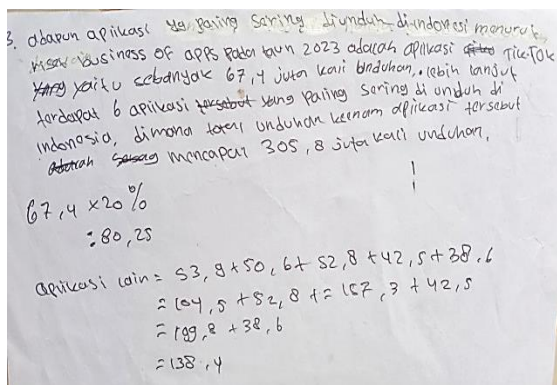 3. adapun apiikasi yg paling sering diunduh di indonesi menurut
riset business OF apps pada taun 2023 adalah aplikasi TikTok
yaitu sebanyak 67,4 juta kali unduhan, lebih lanjut
terdapat 6 aplikasi yang paling sering di unduh di
indonesia, dimana total unduhan keenam aplikasi tersebut
mencapai 305,8 juta kali unduhan.
67,4 x20%
=80,25
aplikasi lain = 53,9+50,6+52,8+42,5+38,6
=104,5+52,8+=157,3+42,5
=199,8+38,6
=138,4